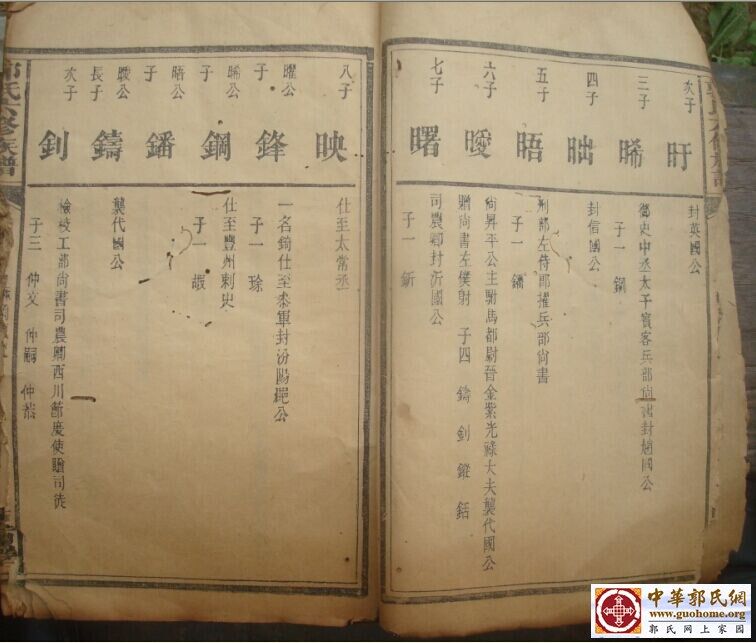 次子
旴
封英國公
三子
晞
御史中丞太子賓客兵部尚書封趙國公
子一 鋼
四子
昢
封信國公
五子
晤
刑部左侍郎擢兵部尚書
子一 鐇
六子
曖
尚昇平公主駙馬都尉晉金紫光祿大夫襲代國公
贈尚書左僕射 子四 鑄 釗 鏦 銛
七子
曙
司農卿封沂國公
子一 釿
八子
映
仕至太常丞
曜公
子
鋒
一名錡仕至叅軍封汾陽邑公
子一
晞公
子
鋼
仕至豐州刺史
子一 嘏
晤公
子
鐇
曖公
長子
鑄
襲代國公
次子
釗
檢校工部尚書司農卿西川節度使贈司徒
子三 仲文 仲嗣 仲恭
氏六修族譜
中華郭氏網
www.guohome.org
郭氏網上家園